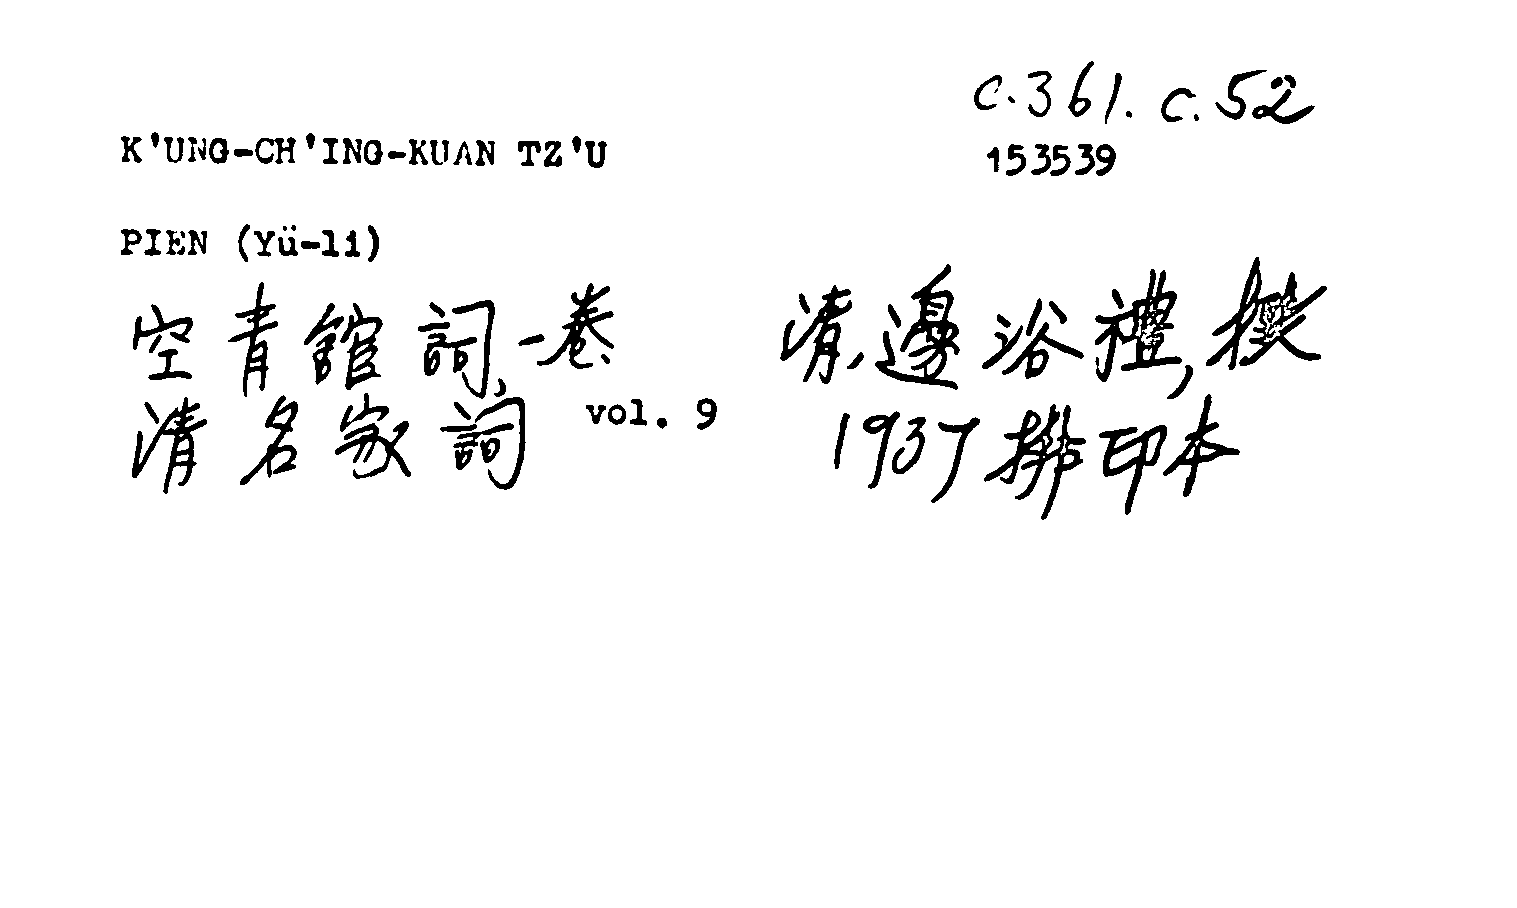 c.361.c.52
K'UNG-CH'ING-KUAN TZ'U
153539
PIEN (Yü-li)
空青館詞,一卷 清,邊浴禮,撰
清名家詞 vol. 9 1937排印本